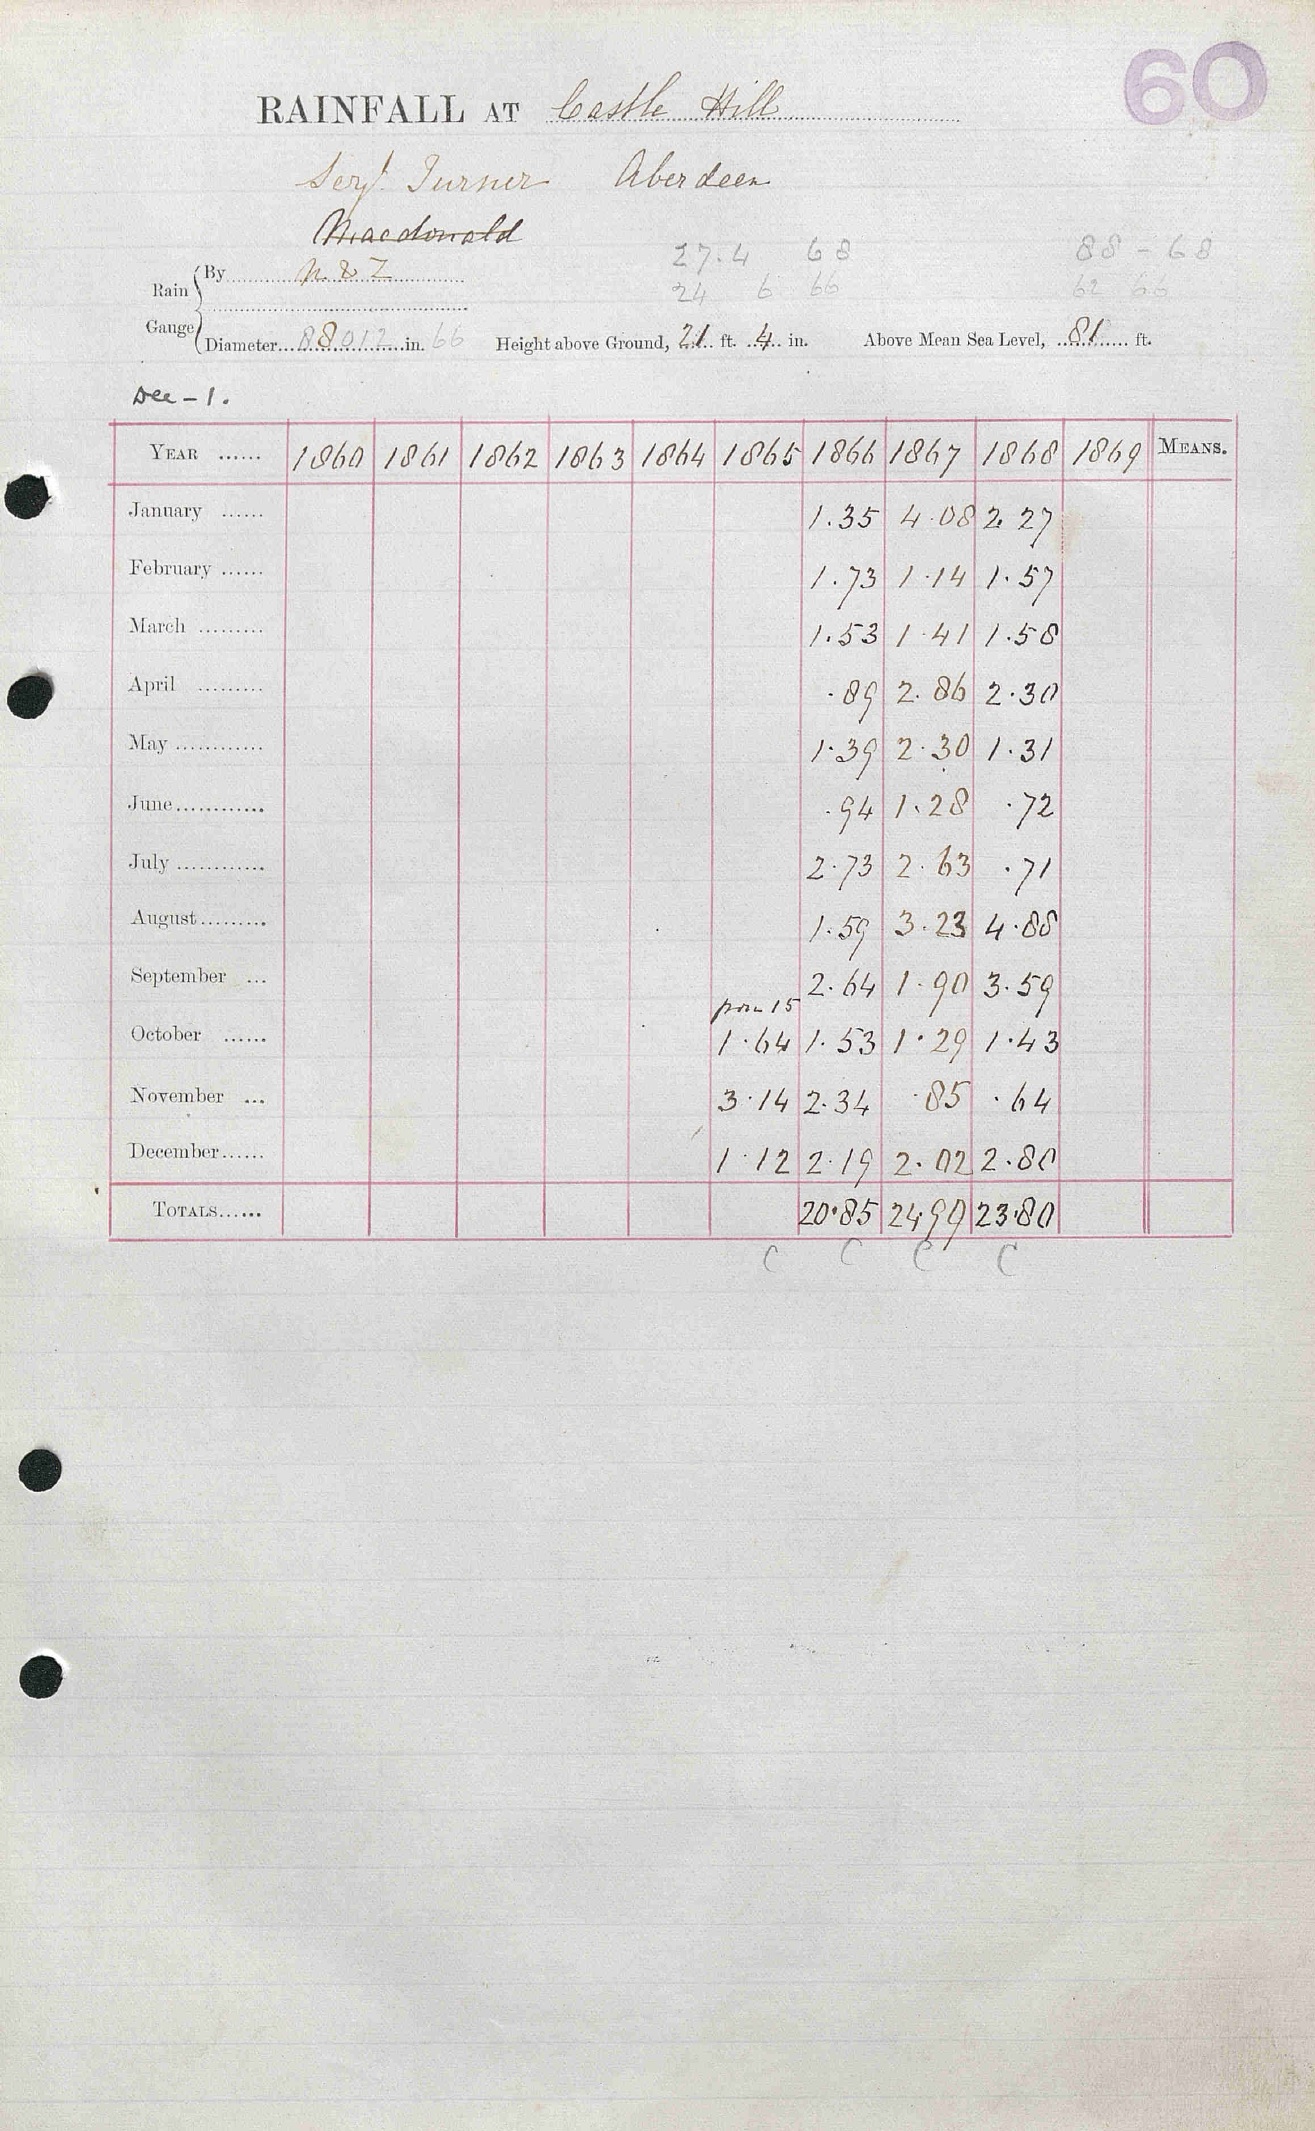 60
RAINFALL AT Castle Hill
Serjt. Turner Aberdeen
Macdonald
27.4 68 88 - 68
24 6 66 62 66
Rain Gauge
By N & Z
Diameter in. 66 Height above Ground, 21 ft. 4 in. Above Mean Sea Level, 81 ft.
Dec - 1.
YEAR ...... 1860 1861 1862 1863 1864 1865 1866 1867 1868 1869 MEANS.
January ...... 1.35 4.08 2.27
February ...... 1.73 1.14 1.57
March ......... 1.53 1.41 1.58
April ......... .89 2.86 2.30
May ............ 1.39 2.30 1.31
June............ .94 1.28 .72
July ............ 2.73 2.63 .71
August......... 1.59 3.23 4.88
September ... 2.64 1.90 3.59
from 15
October ...... 1.64 1.53 1.29 1.43
November ... 3.14 2.34 .85 .64
December...... 1.12 2.19 2.02 2.80
TOTALS...... 20.85 24.99 23.80
C C C C